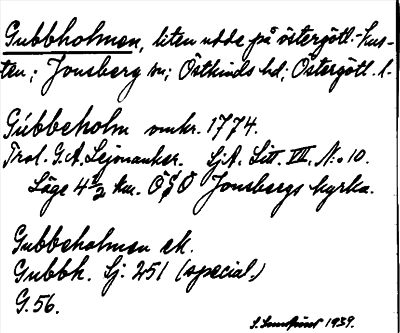 Gubbholmen, liten udde på östergötl.-kus-
ten; Jonsberg sn; Östkinds hd; Östergötl. l.
Gúbbeholm omkr. 1774.
Trol. G. A. Lejonanker. SjA. Litt. VII. N:o 10.
Läge 4 1/2 km. ÖSÖ Jonsbergs kyrka.
Gubbeholmen ek.
Gubbh. Sj. 251 (special.)
G. 56.
S. 1939.